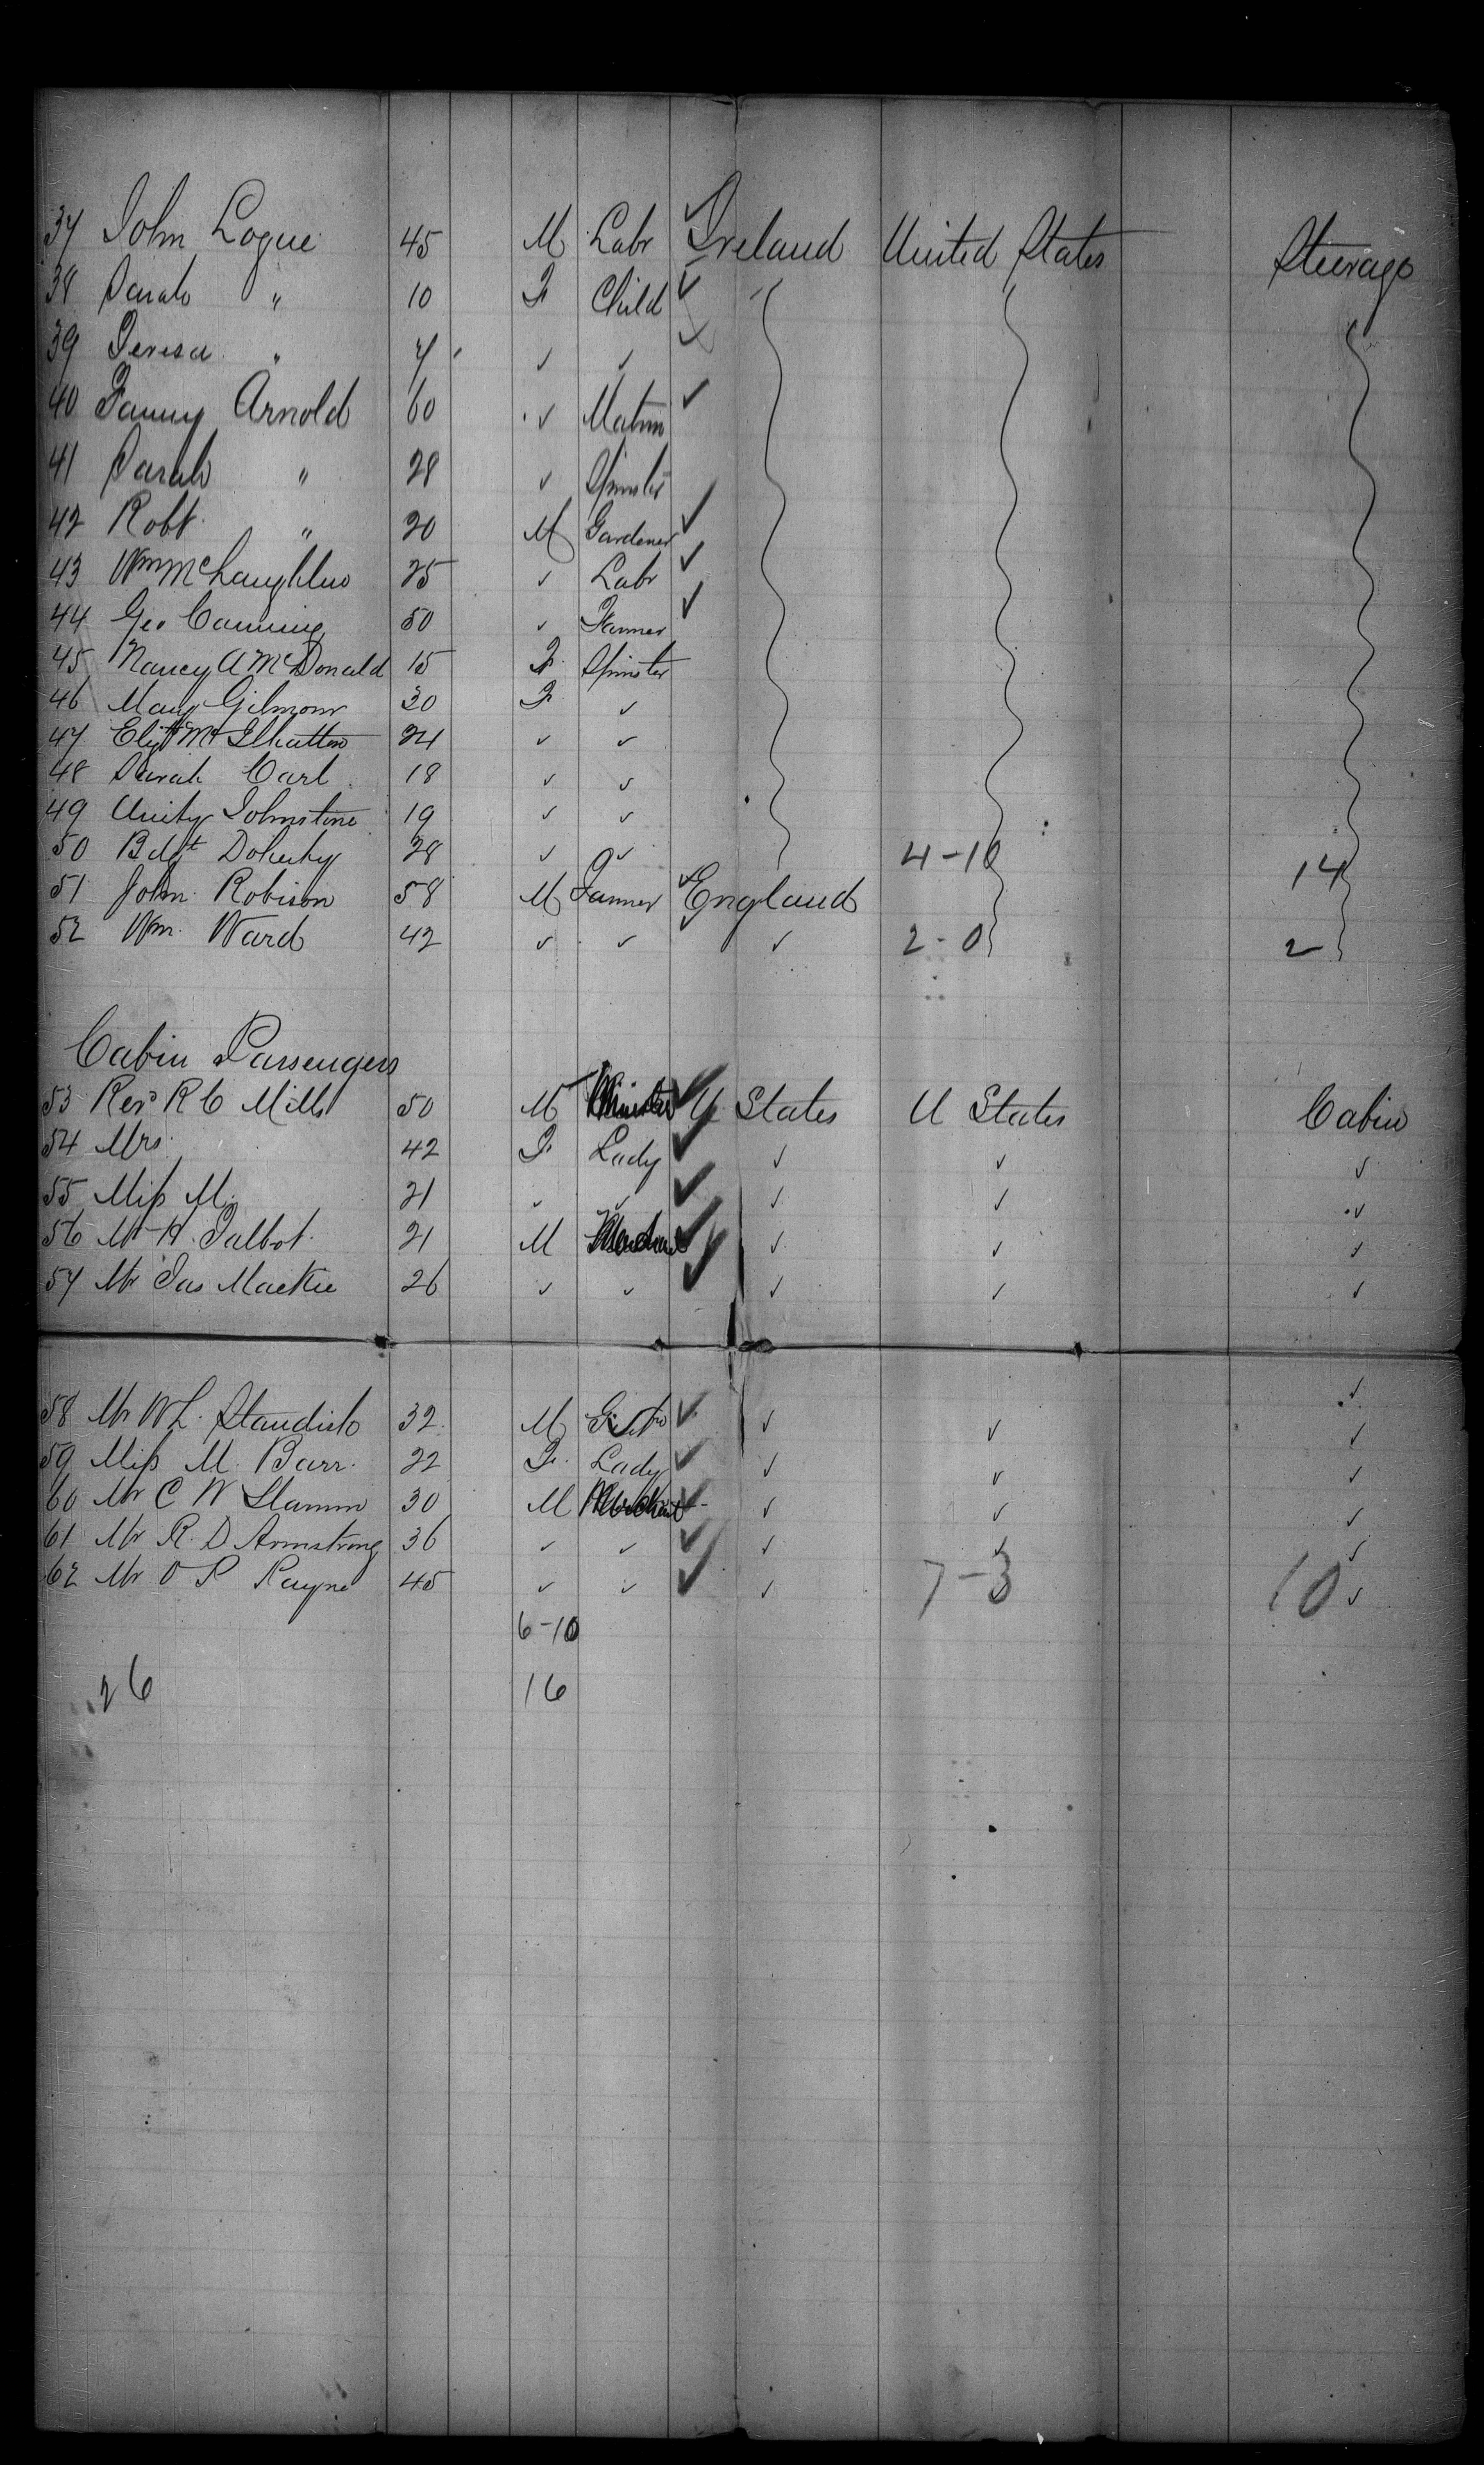 37 John Logue 45 M Labr Ireland United States Steerage
38 Sarah " 10 F Child
39 Teresa " 7 ✓ ✓
40 Fanny Arnold 60 ✓ Matron
41 Sarah " 28 ✓ Spinster
42 Robt " 20 M Gardener
43 Wm McLaughlin 25 ✓ Labr
44 Geo Canning 50 ✓ Farmer
45 Nancy A McDonald 15 F Spinster
46 Mary Gilmour 30 F ✓
47 Elizth 24 ✓ ✓
48 Sarah Carl 18 ✓ ✓
49 Unity Johnstone 19 ✓ ✓
50 Bdgt Doherty 28 ✓ ✓ 4-10 14
51 John Robison 58 M Farmer England
52 Wm. Ward 42 ✓ ✓ ✓ 2-0 2
Cabin Passengers
53 Revd R C Mills 50 M Minister U States U States Cabin
54 Mrs 42 F Lady ✓ ✓ ✓
55 Miss M. 21 ✓ ✓ ✓ ✓ ✓
56 Mr H. Talbot 21 M ✓ ✓ ✓
57 Mr Jas Mackie 26 ✓ ✓ ✓ ✓ ✓
58 Mr W L. Standish 32 M ✓ ✓ ✓
59 Miss M. Barr 22 F. Lady ✓ ✓ ✓
60 Mr C W Stamm 30 M Merchant ✓ ✓ ✓
61 Mr R. D Armstrong 36 ✓ ✓ ✓ ✓ ✓
62 Mr O P Payne 45 ✓ ✓ ✓ 7-3 10 ✓
6-10
26 16